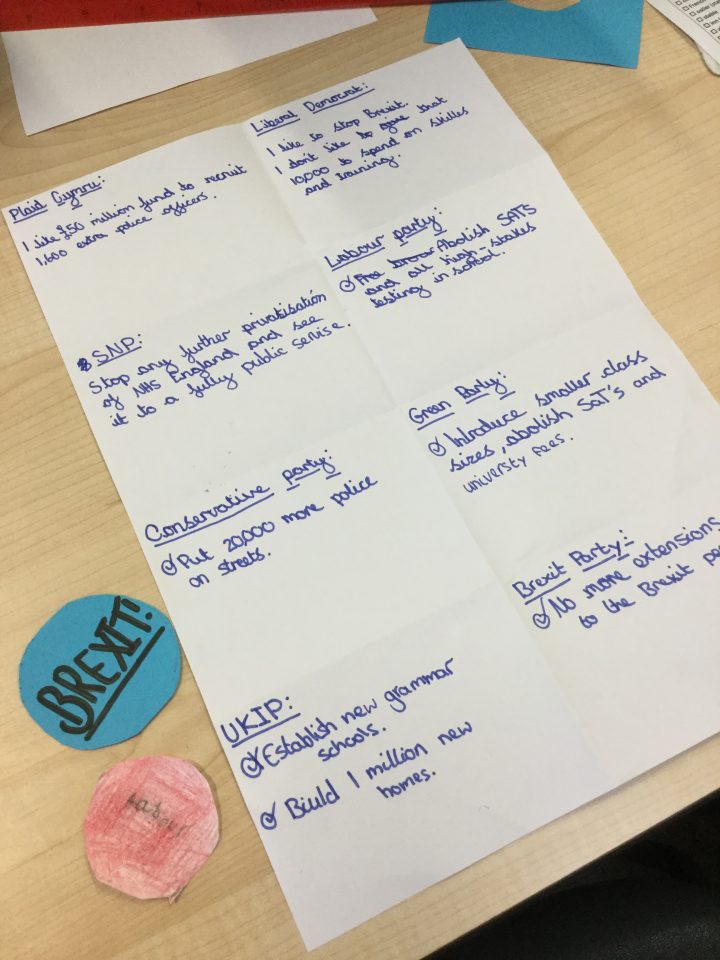 Plaid Cymru:
I like £50 million fund to recruit
1,600 extra police officers.
Liberal Democrat:
I like to stop Brexit.
I don't like to give that
10,000 to spend on skilles
and training.
SNP:
Stop any further privatisation
of NHS England and see
it to a fully public servise.
Labour party:
Free Abolish SATS
and all high-stakes
testing in school.
Conservative party:
Put 20,000 more police
on streets.
Green Party:
Introduce smaller class
sizes, abolish SaT's and
universty fees.
UKIP:
Establish new grammar
schools.
Biuld 1 million new
homes.
Brexit Party:
No more extensions
to the Brexit
BREXIT!
Labour